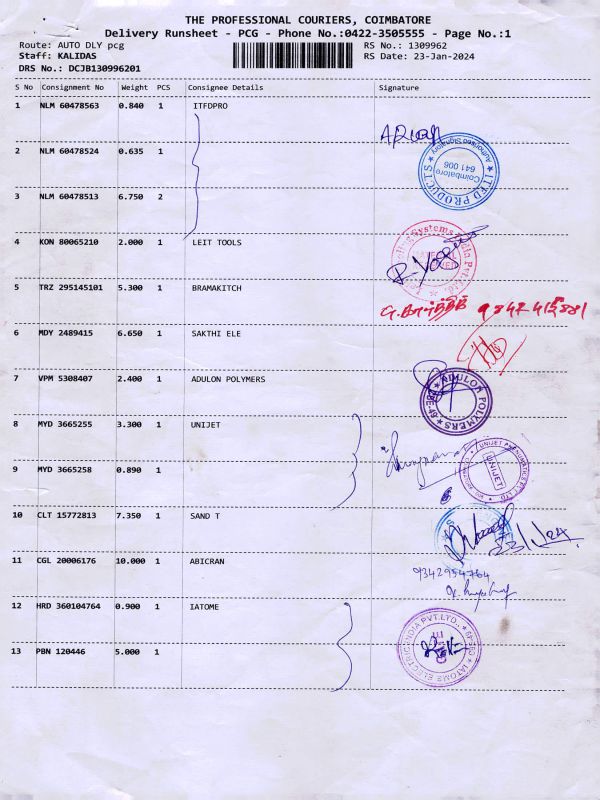 THE PROFESSIONAL COURIERS, COIMBATORE
Delivery Runsheet - PCG - Phone No.:0422-3505555 - Page No.:1
Route: AUTO DLY pcg RS No.: 1309962
Staff: KALIDAS RS Date: 23-Jan-2024
DRS No.: DCJB130996201
S No Consignment No Weight PCS Consignee Details Signature
1 NLM 60478563 0.840 1 ITFDPRO
2 NLM 60478524 0.635 1
Authorised Signatory
Coimbatore
641 006
ITED PRODUCTS
3 NLM 60478513 6.750 2
4 KON 80065210 2.000 1 LEIT TOOLS
5 TRZ 295145101 5.300 1 BRAMAKITCH
6 MDY 2489415 6.650 1 SAKTHI ELE
7 VPM 5308407 2.400 1 ADULON POLYMERS
ADULON POLYMERS
8 MYD 3665255 3.300 1 UNIJET
UNIJET
9 MYD 3665258 0.890 1
10 CLT 15772813 7.350 1 SAND T
23/1/24
11 CGL 20006176 10.000 1 ABICRAN
9342954764
12 HRD 360104764 0.900 1 IATOME
IATOME ELECTRIC INDIA PVT.LTD.,
13 PBN 120446 5.000 1